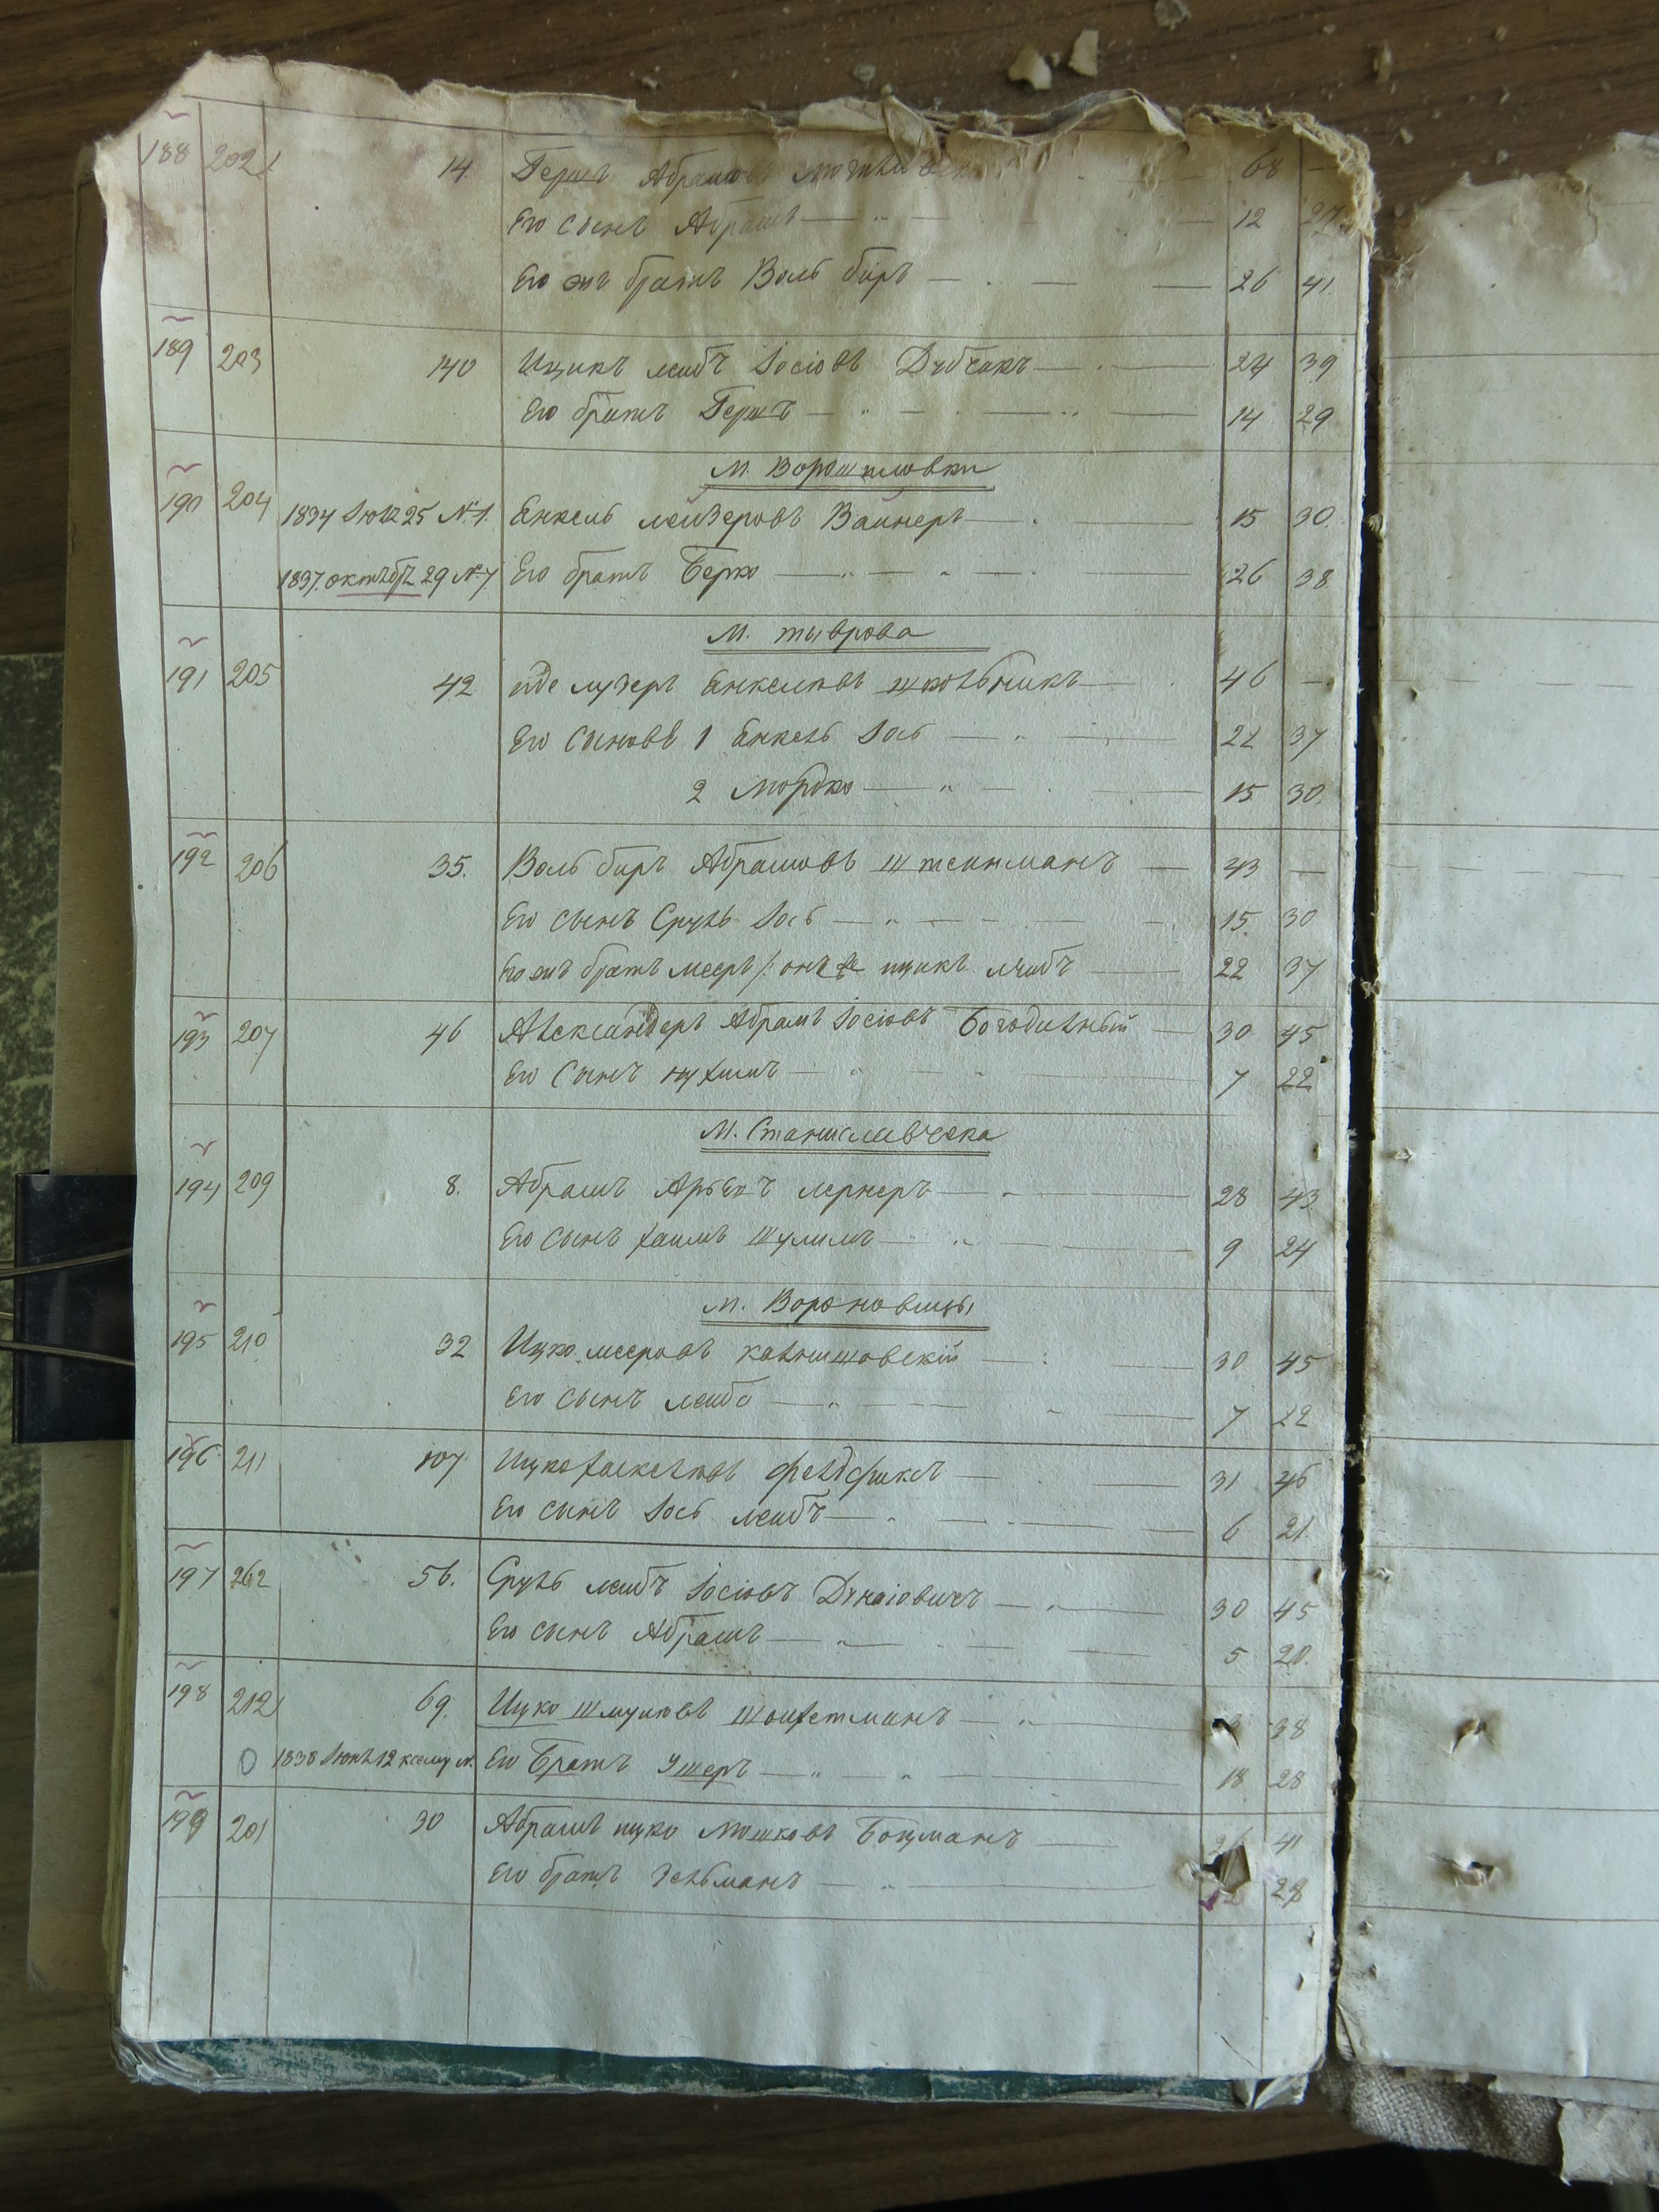 188 202 14. Гершъ Абрамовъ 68 —
Его сынъ Абрамъ — „ — 12 27
Его жъ братъ Воль биръ — 26 41.
189 203 140 Ицикъ лейбъ Іосіовъ Дубчакъ — 24 39
Его братъ Гершъ — „ — 14 29
М. Ворошиловки
190 204 1834 Іюля 25 №1. Енкель лейзеровъ Вайнеръ — 15 30.
1837. октябр 29 №7. Его братъ Берко — „ — 26 38.
М. тыврова
191 205 42 Енкелювъ школьникъ — 46 —
Его сыновѣ 1 Енкель Іось — 22 37
2 Мордко — „ — 15 30.
192 206 35. Воль биръ Абрамовъ штейнманъ — 43 —
Его сынъ Сруль Іось — „ — 15. 30
Его жъ братъ мееръ /: онъ же ицикъ лейбъ — 22 37
193 207 46 Александеръ Абрамъ Іосіовъ Богодилный — 30 45
Его Сынъ нухимъ — „ — 7 22
М. Станиславчека
194 209 8. Абрамъ Арьевъ лернеръ — „ — 28 43.
Его сынъ хаимъ шулимъ — „ — 9 24
М. Вороновицы
195 210 32 Ицко мееровъ калнишовскій — 30 45
Его сынъ лейба — „ — 7 22
196 211 107 Ицко хаскелювъ фелдфиксъ — 31 46
Его сынъ Іось лейбъ — „ — 6 21.
197 262 56. Сруль лейбъ Іосіовъ Дунаіовичъ — 30 45
Его сынъ Абрамъ — „ — 5 20.
198 212 69. Ицко шмулювъ шойхетманъ — „ — 38
1838 Іюнь 12 Его Братъ Ушеръ — „ — 18 28
199 201 30 Абрамъ ицко Мошковъ Боцманъ — 26 41
Его братъ Зельманъ — „ — 28